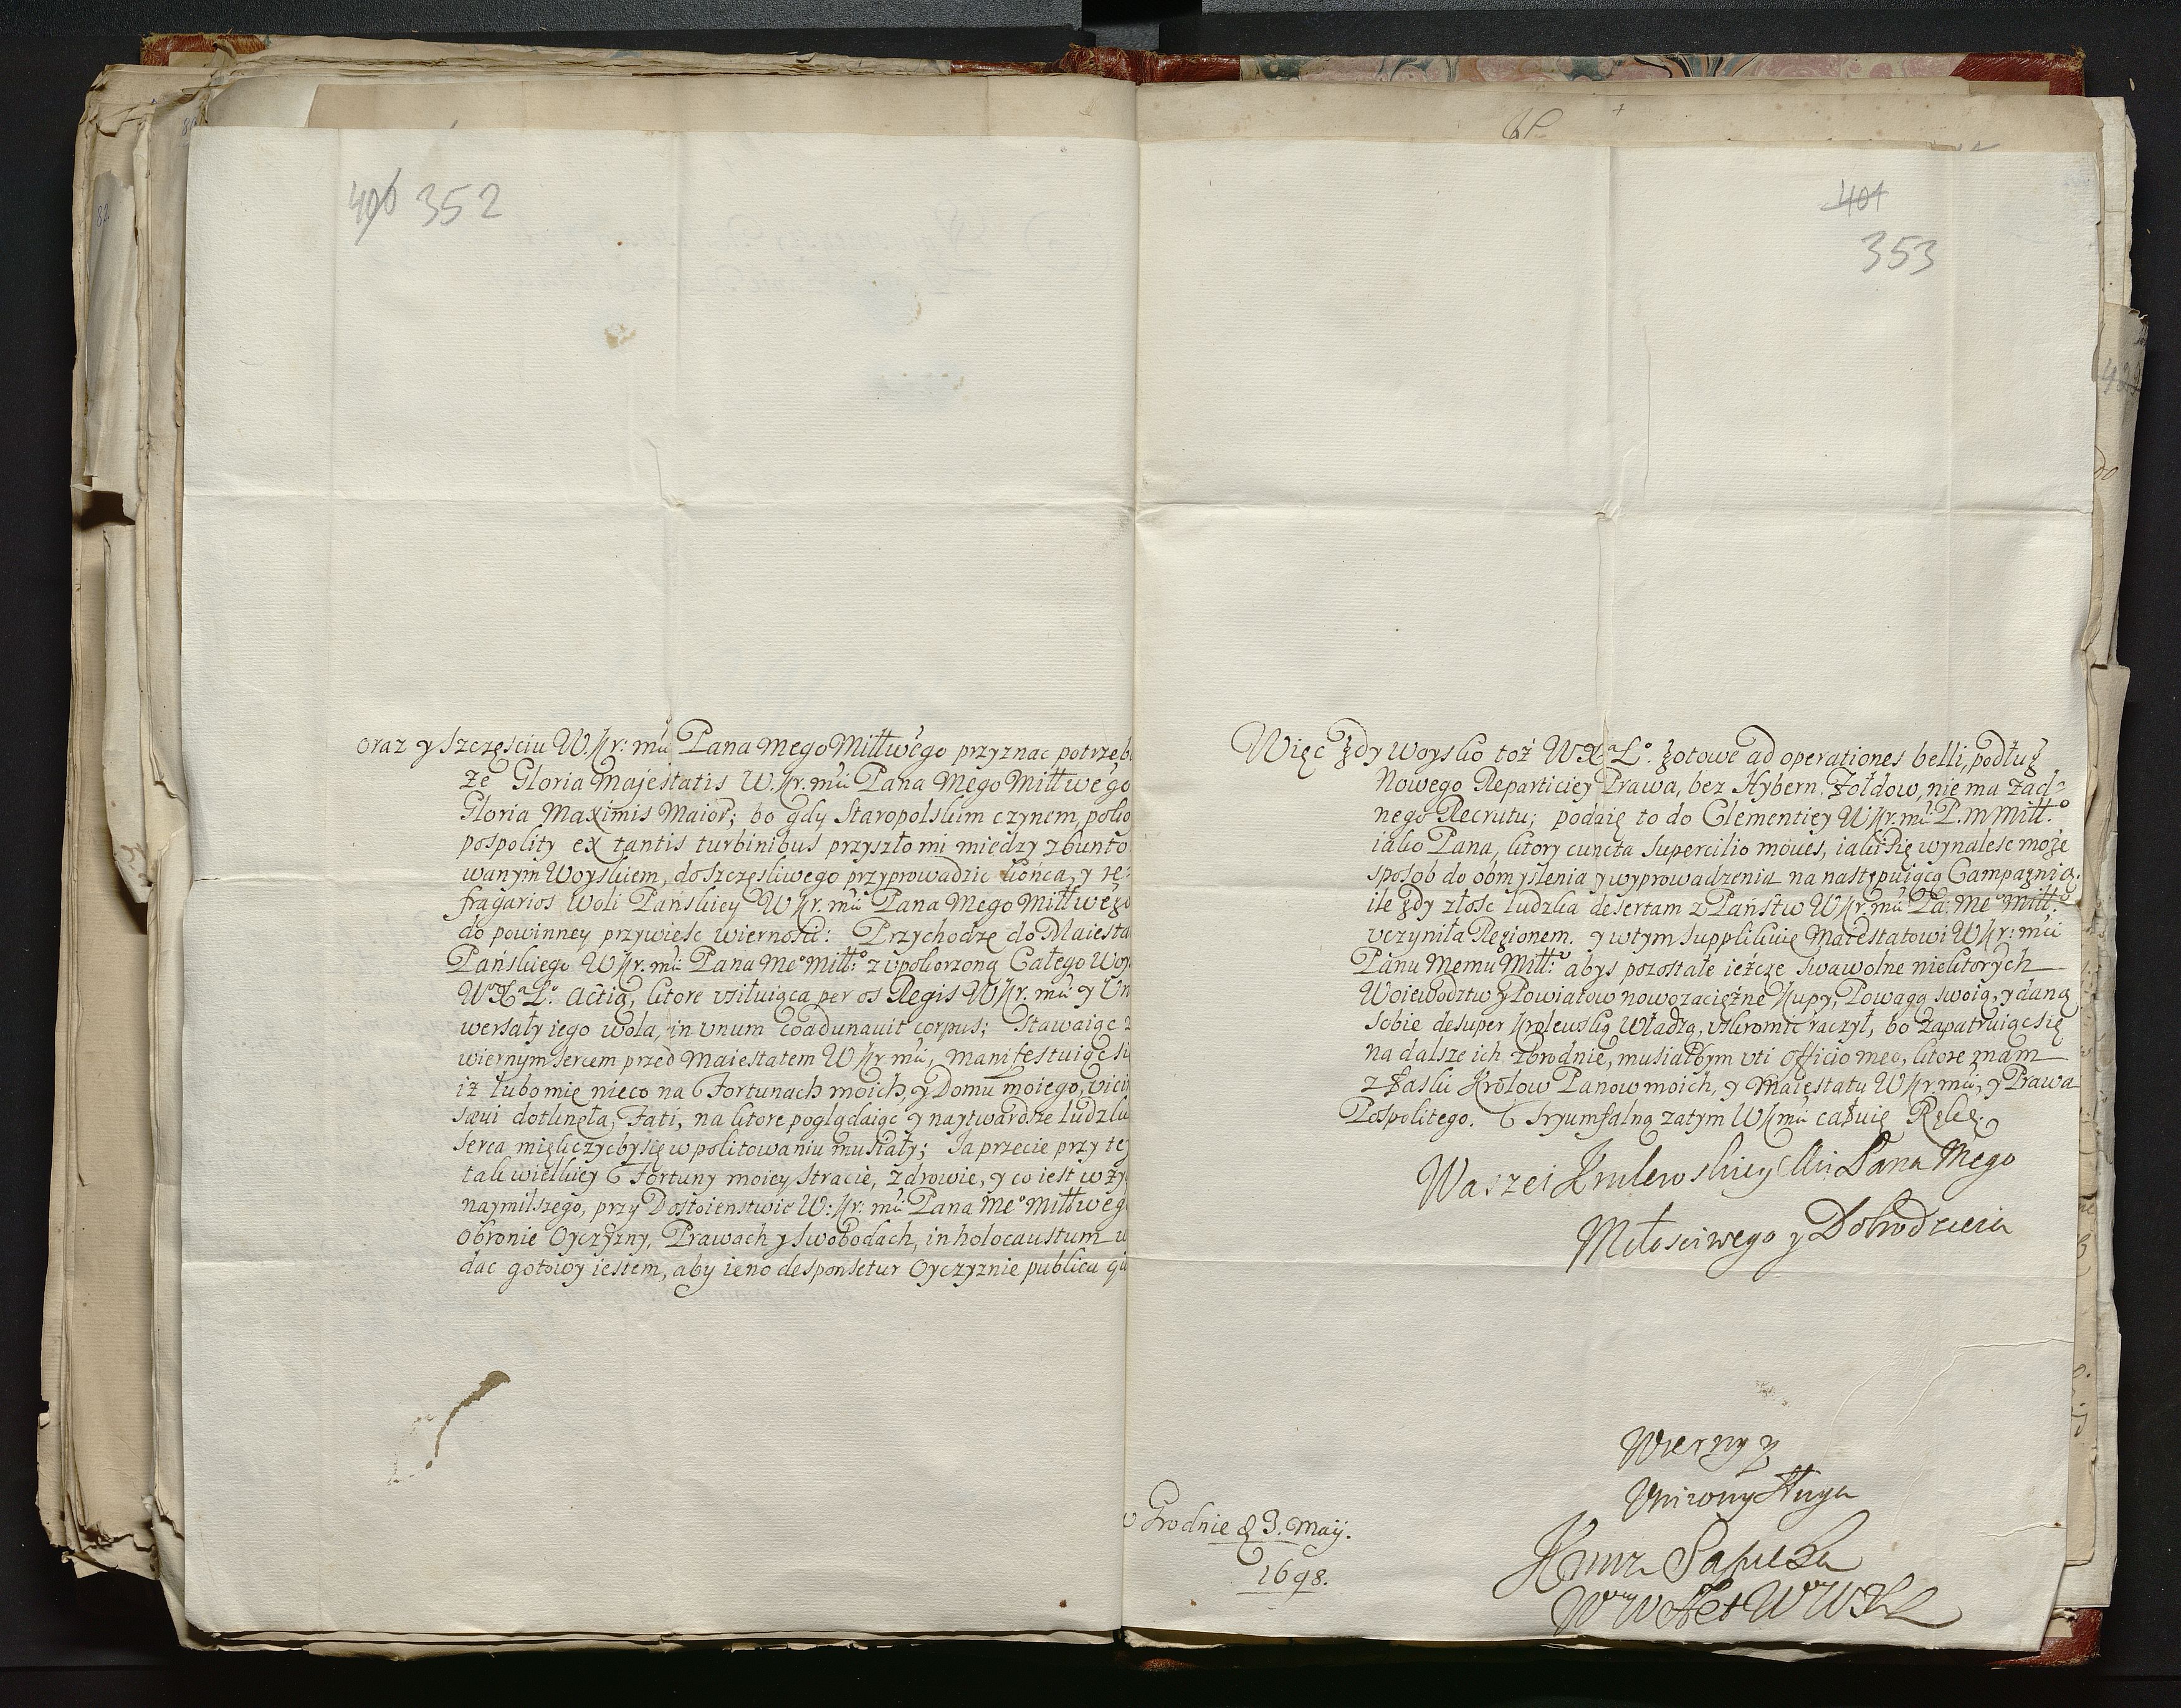 400 352
oraz y szczęsciu W. Kr: mći Pana mego Miłłwego przyznac potrzeb
że Gloria Majestatis W. Kr. mći Pana Mego Miłłwego
Gloria Maximis Maior; bo gdy Staropolskim czynem, poko
pospolity ex tantis turbinibus przyszło mi między zbunto
wanym Woyskiem, do szczęsliwego przyprowadzic końca, y re-
fragarios Woli Pańskiey W Kr. mći Pana Mego Miłłwego
do powinney przywieśc wierności: Przychodzę do Maiesta
Pańskiego W Kr. mći Pana Me° Miłł:° z vpokorzoną Całego Woy
W° X^a L° Actią, ktore vsiłuiąca per os Regis W Kr. mći y Un
wersały iego wola, in vnum coadunauit corpus; Stawaiąc z
wiernym sercem przed Maiestatem W Kr. mći, manifestuiąc si
iż lubo mię nieco na Fortunach moich, y Domu moiego, vici
sæui dotknęła, Fati, na ktore poglądaiąc y naytwardsze ludzk
serca mięk czycby się w politowaniu musiały; Ja przecie przy tey
tak wielkiey Fortuny moiey stracie, zdrowie, y co iest w ży
naymilszego, przy Dostoienstwie W: Kr: mći Pana Me° Miłłweg
obronie Oyczyzny, Prawach y Swobodach, in holocaustum
dac gotowy iestem, aby ieno desponsetur Oyczyznie publica
401
353
Więc gdy woysko toż W X^a L°. gotowe ad operationes belli, podług
Nowego Reparticiey Prawa, bez Hybern, Żołdow, nie ma żad-
nego Recrutu; podaię to do Clementiey W Kr. mći P. m Miłł:°
iako Pana, ktory cuncta supercilio moues, iaki się wynalesc może
sposob do obmyślenia y wyprowadzenia na następuiącą Campagnią.
ile gdy złośc ludzka desertam z Państw W Kr. mći Pa: Me° Miłł:°
vczyniła Regionem. y w tym supplikuię Maiestatowi W Kr: mći
Panu Memu Miłł: abys pozostałe ieżcze swawolne niektorych
Woiewodztw y Powiatow nowozaciężne Kupy, Powagą swoią, y daną
sobie desuper Krolewską Władzą, vskromic raczył, bo zapatruiąc się
na dalsze ich zbrodnie, musiałbym vti officio meo, ktore znam
z łaski Krolow Panow moich, y Maiestatu W Kr. mći, y Prawa
Pospolitego. Tryumfalną zatym W K mći całuię Rękę.
Waszei Krulewskiey Mći Pana Mego
Miłosciwego y Dobrodzieia
Wierny y
Vnizony Sługa
w Grodnie d 3. Maij.
1698.
Kmrz Sapieha
WW Het W W X L